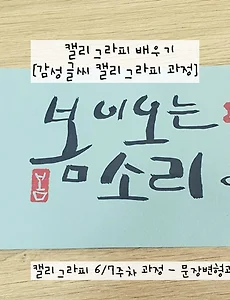 캘리그라피 배우기
[감성글씨 캘리그라피 과정]
봄이오는
소리
봄
캘리그라피 6/7주차 과정 - 문장변형